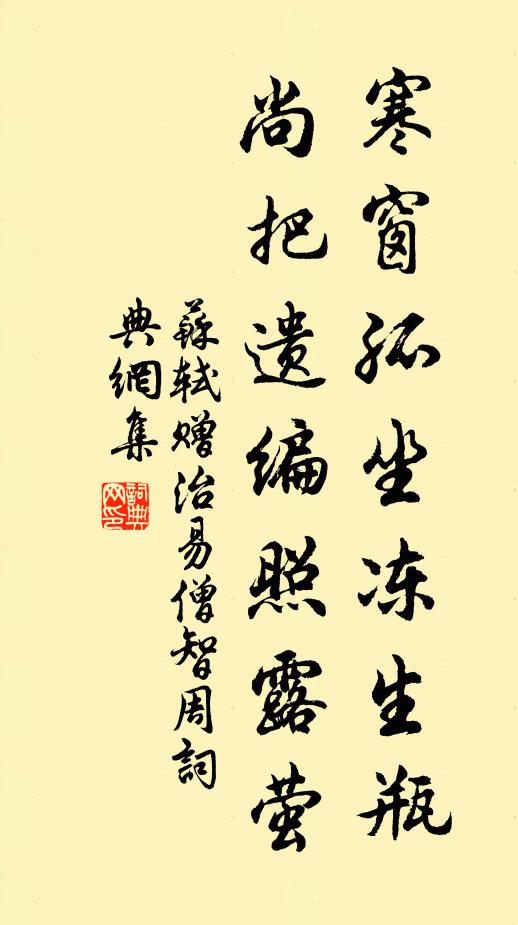 寒窗孤坐冻生瓶
尚把遗编照露萤
蘇軾赠治易僧智周詞
典網集
詞典
网印